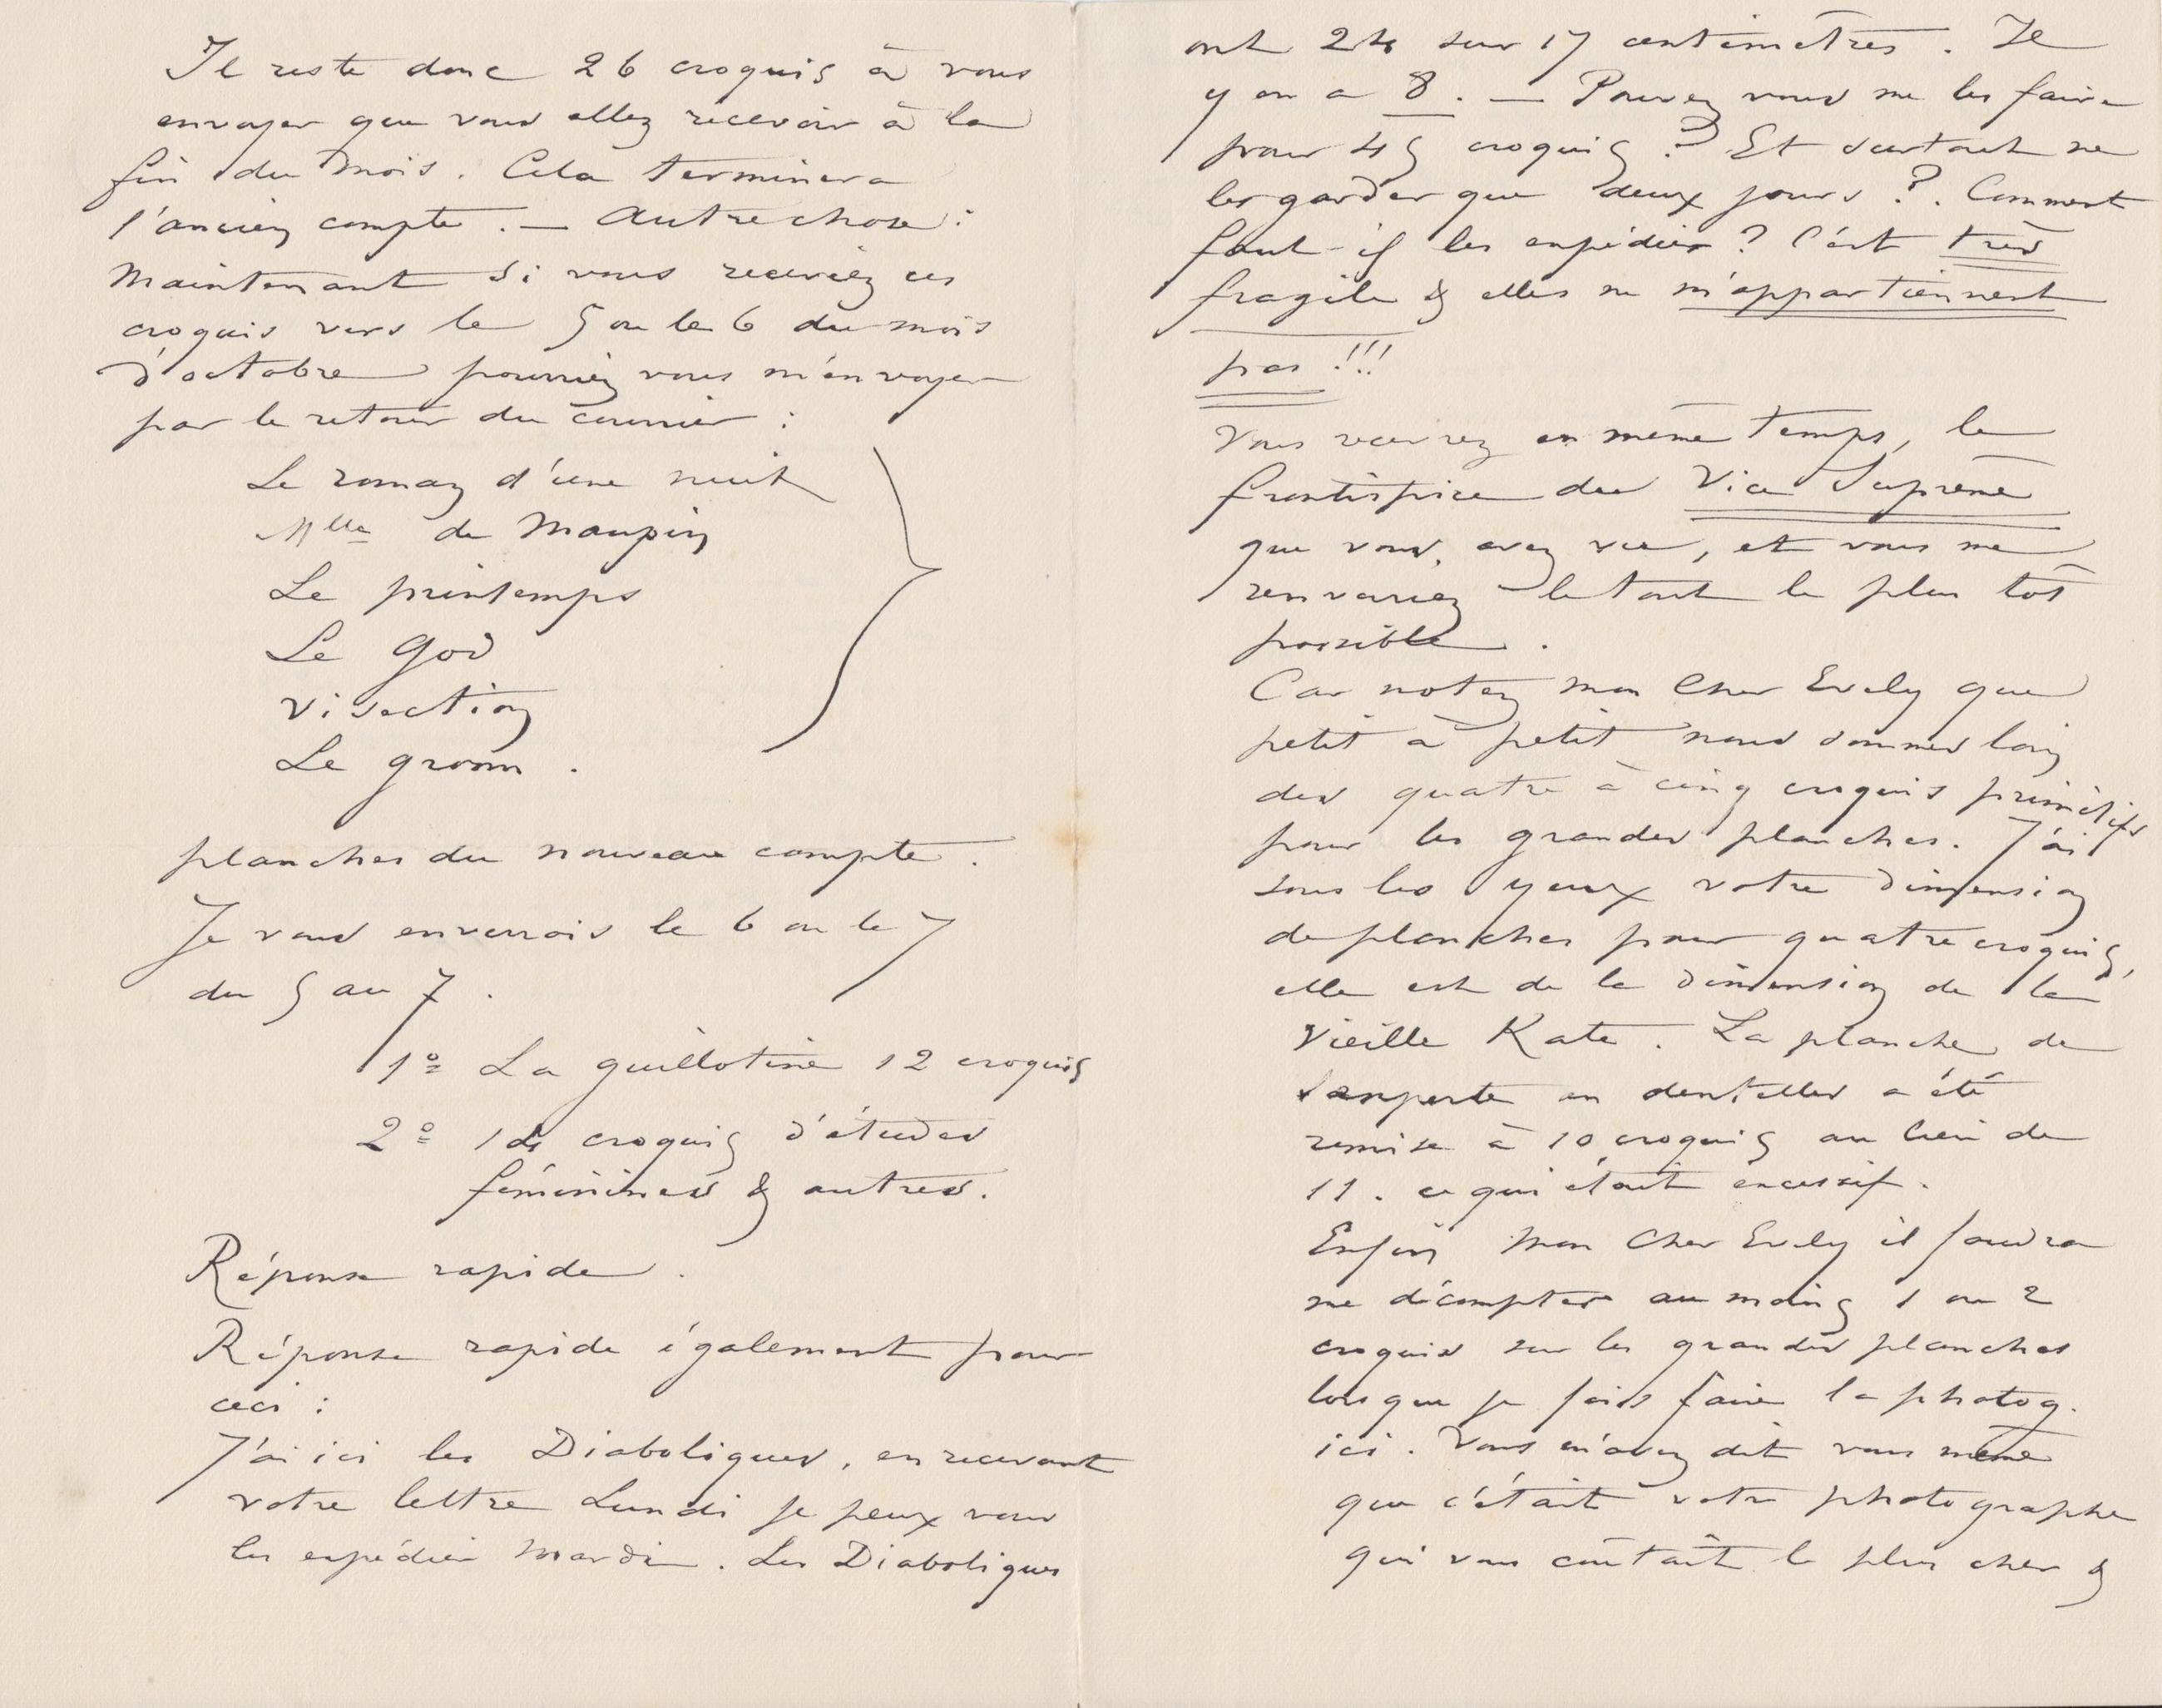 Il reste donc 26 croquis à vous
envoyer que vous allez recevoir à la
fin du mois. Cela terminera
l'ancien compte. — Autre chose :
Maintenant si vous receviez ces
croquis vers le 5 ou le 6 du mois
d'octobre pourriez vous m'envoyer
par le retour du courrier :
Le roman d'une nuit
Mlle de Maupin
Le printemps
Le God
Visection
Le groom.
planches du nouveau compte.
Je vous enverrois le 6 ou le 7
du 5 au 7.
1º La guillotine 12 croquis
2º 14 croquis d'études
féminines & autres.
Réponse rapide.
Réponse rapide également pour
ceci :
J'ai ici les Diaboliques, en recevant
votre lettre Lundi je peux vous
les expédier Mardi. Les Diaboliques
ont 24 sur 17 centimètres. Il
y en a 8. — Pouvez vous me les faire
pour 45 croquis ? Et surtout ne
les garder que deux jours ?. Comment
faut-il les expédier ? C'est très
fragile & elles ne m'appartiennent
pas !!!
Vous recevrez en même temps, le
frontispice du Vice Suprême
que vous avez vu, et vous me
renverriez le tout le plus tôt
possible.
Car notez mon Cher Evely que
petit à petit nous sommes loin
des quatre à cinq croquis primitifs
pour les grandes planches. J'ai
sous les yeux votre dimension
de planches pour quatre croquis,
elle est de la dimension de la
Vieille Kate. La planche de
en dentelles a été
remise à 10 croquis au lieu de
11. ce qui était excessif.
Enfin Mon Cher Evely il faudra
me décompter au moins 1 ou 2
croquis sur les grandes planches
lorsque je fais faire la photog.
ici. Vous m'avez dit vous même
que c'était votre photographe
qui vous coûtait le plus cher &